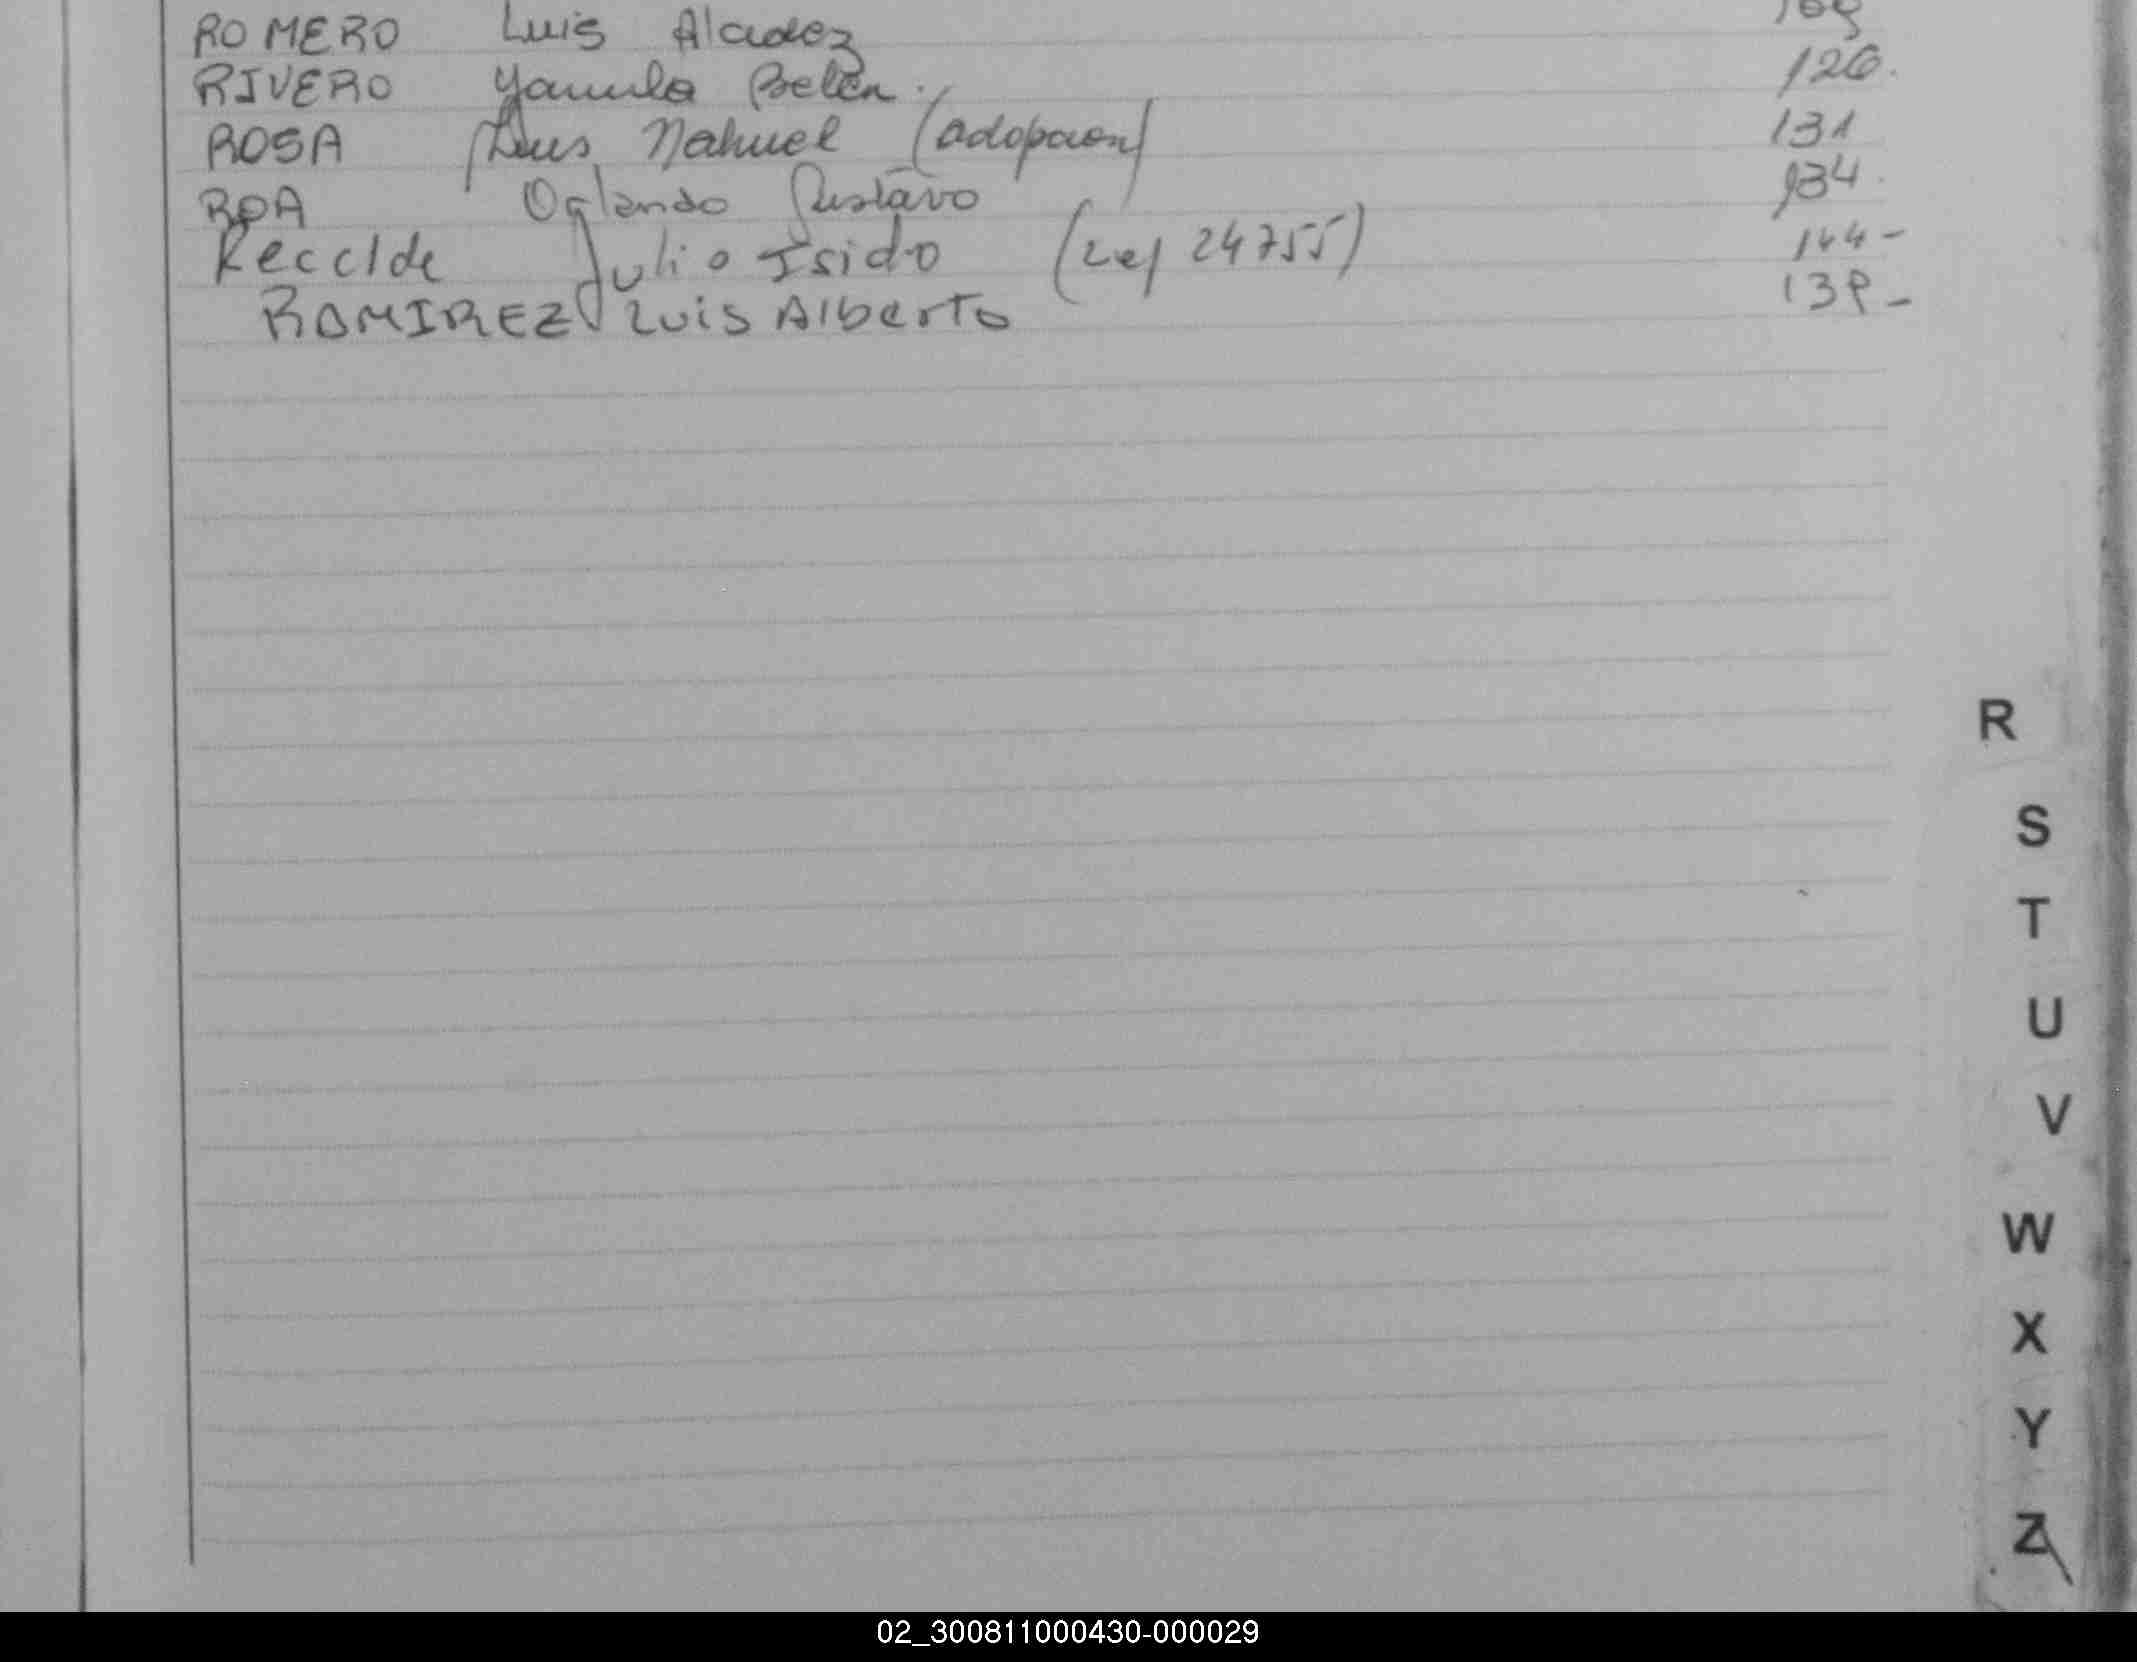 ROMERO Luis Alcidez
RIVERO Yamila Belén. 126.
ROSA Luis Nahuel (adopcion) 131
ROA Orlando Gustavo 134.
Recalde Julio Isidro (Ley 24755) 144-
RAMIREZ Luis Alberto 139-
R
S
T
U
V
W
X
Y
Z
02_300811000430-000029